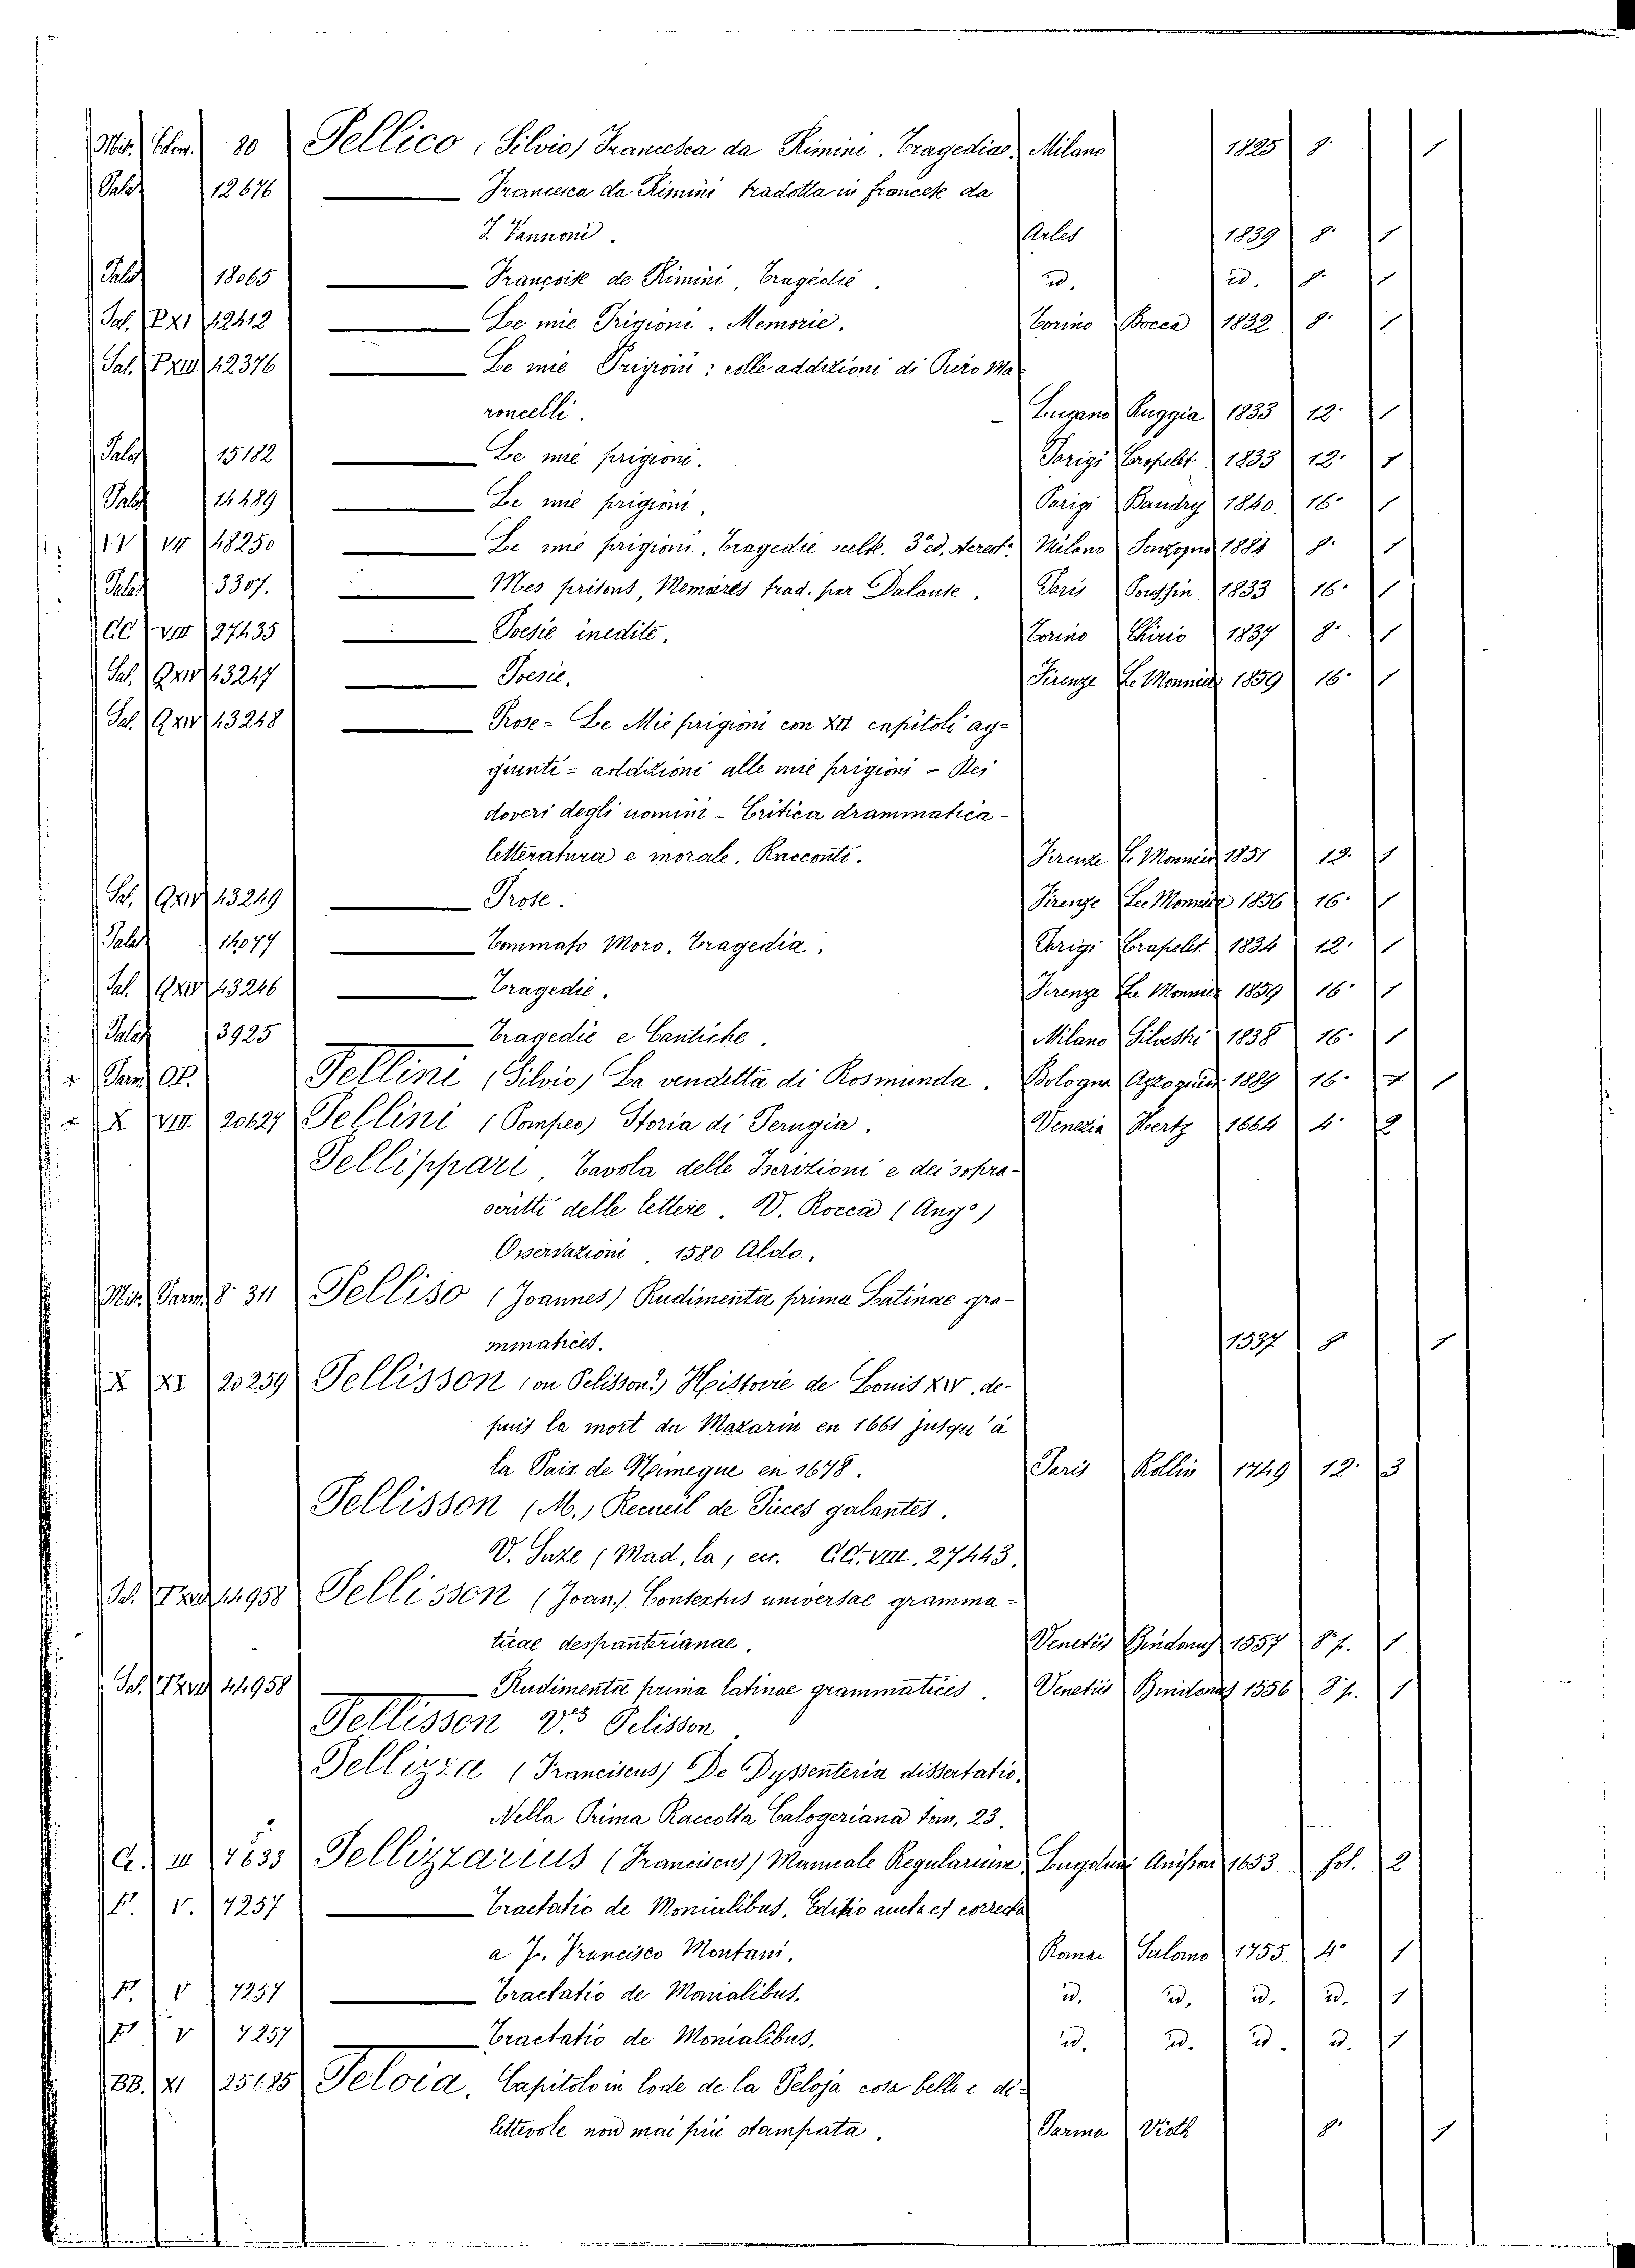 Mis. 80 Pellico (Silvio) Francesca da Rimini. Tragedia. Milano 1825 8° 1
Palat 12676 — Francesca da Rimini tradotta in francese da
J. Vannoni. Arles 1839 8° 1
Palat 18065 — Françoise de Rimini, Tragédie. id. id. 8° 1
Sal. PXI 12412 — Le mie Prigioni. Memorie. Torino Bocca 1832 8° 1
Sal. PXIII 12376 — Le mie Prigioni: colle addizioni di Piero Ma
roncelli. Lugano Ruggia 1833 12° 1
Palat 15182 — Le mie prigioni. Parigi 1833 12° 1
Palat 14489 — Le mie prigioni. Parigi Baudry 1840 16° 1
VI 48250 — Le mie prigioni, Tragedie scelte. 3ª ed. stereot. Milano Sonzogno 1881 8° 1
Palat 3307. — Mes prisons, Memoires trad. par Dalause. Paris 1833 16° 1
CC VIII 27435 — Poesie inedite. Torino Chirio 1837 8° 1
Sal. QXIV 13247 — Poesie. Firenze Le Monnier 1859 16° 1
Sal. QXIV 13248 — Prose - Le Mie prigioni con XII capitoli ag-
giunti - addizioni alle mie prigioni - Dei
doveri degli uomini - Critica drammatica -
letteratura e morale. Racconti. Firenze Le Monnier 1851 12. 1
Sal. QXIV 13249 — Prose. Firenze Le Monnier 1856 16° 1
Palat 14077 — Tommaso Moro. Tragedia. Parigi Crapelet 1834 12° 1
Sal. QXIV 13246 — Tragedie. Firenze Le Monnier 1859 16° 1
Palat 3925 — Tragedie e Cantiche. Milano Silvestri 1838 16° 1
Pellini (Silvio) La vendetta di Rosmunda. Bologna Azzoguidi 1889 16° 1
X VIII 20627 Pellini (Pompeo) Storia di Perugia. Venezia Hertz 1664 4° 2
Pellippari, Tavola delle Iscrizioni e dei sopra-
scritti delle lettere. V. Rocca (Ang°)
Osservazioni, 1580 Aldo.
Mis. Parm. 8° 311 Pelliso (Joannes) Rudimenta prima Latinae gra-
mmatices. 1537 8 1
X XI 20259 Pellisson (ou Pelisson?) Histoire de Louis XIV, de-
puis la mort du Mazarin en 1661 jusqu'à
la Paix de Nimegue en 1678. Paris Rollin 1749 12° 3
Pellisson (M.) Recueil de Pieces galantes.
V. Suze (Mad. la, ecc. CC. VIII. 27443.
Sal. 44958 Pellisson (Joan.) Contextus universae gramma-
ticae despanterianae. Venetiis Bindonus 1557 8° p. 1
Sal. 44958 — Rudimenta prima latinae grammatices. Venetiis Bindonus 1556 8° p. 1
Pellisson V. Pelisson
Pellizza (Franciscus) De Dyssenteria dissertatio.
Nella Prima Raccolta Calogeriana tom. 23.
G. III 7633 Pellizzarius (Franciscus) Manuale Regularium Lugduni Anisson 1653 fol. 2
F. V. 7257 — Tractatio de Monialibus, Editio aucta et correcta
a J. Francisco Montani. Romae Salomo 1755 4° 1
F. V 7257 — Tractatio de Monialibus. id. id. id. id. 1
F V 7257 — Tractatio de Monialibus. id. id. id. id. 1
BB. XI 25185 Peloia. Capitolo in lode de la Peloja cosa bella e di-
lettevole non mai più stampata. Parma Vioth 8° 1